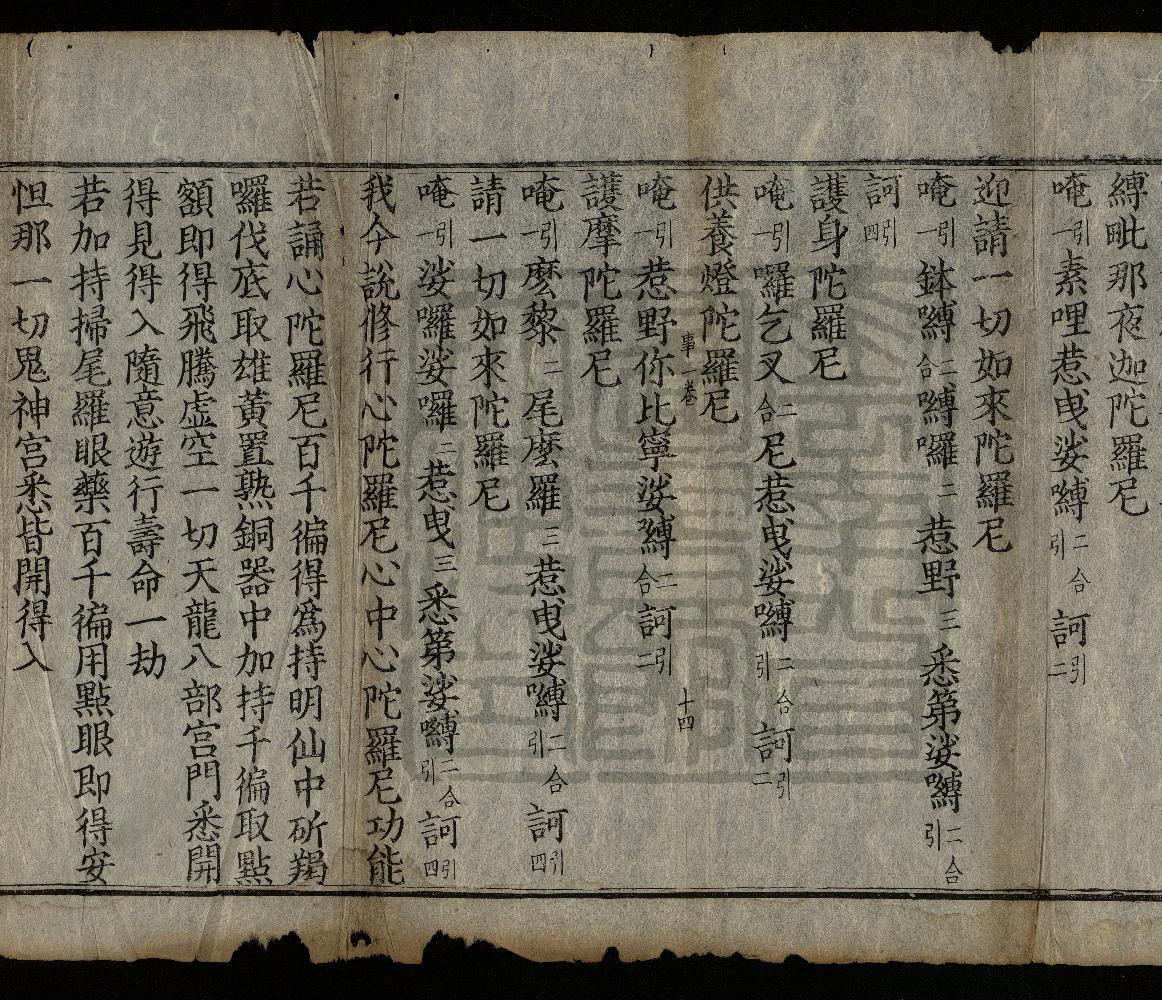 縛毗那夜迦陀羅尼
唵引一素哩惹曳娑嚩二合引訶引二
迎請一切如來陀羅尼
唵引一鉢嚩二合嚩囉二惹野三悉第娑嚩二合引
訶引四
護身陀羅尼
唵引一囉乞叉二合尼惹曳娑嚩二合引訶引二
供養燈陀羅尼
事一卷 十四
唵引一惹野你比寧娑嚩二合訶引二
護摩陀羅尼
唵引一麼黎二尾麼羅三惹曳娑嚩二合引訶引四
請一切如來陀羅尼
唵引一娑囉娑囉二惹曳三悉第娑嚩二合引訶引四
我今說修行心陀羅尼心中心陀羅尼功能
若誦心陀羅尼百千徧得為持明仙中斫羯
囉伐底取雄黃置熟銅器中加持千徧取點
額即得飛騰虛空一切天龍八部宮門悉開
得見得入隨意遊行壽命一劫
若加持掃尾羅眼藥百千徧用點眼即得安
怛那一切鬼神宮悉皆開得入